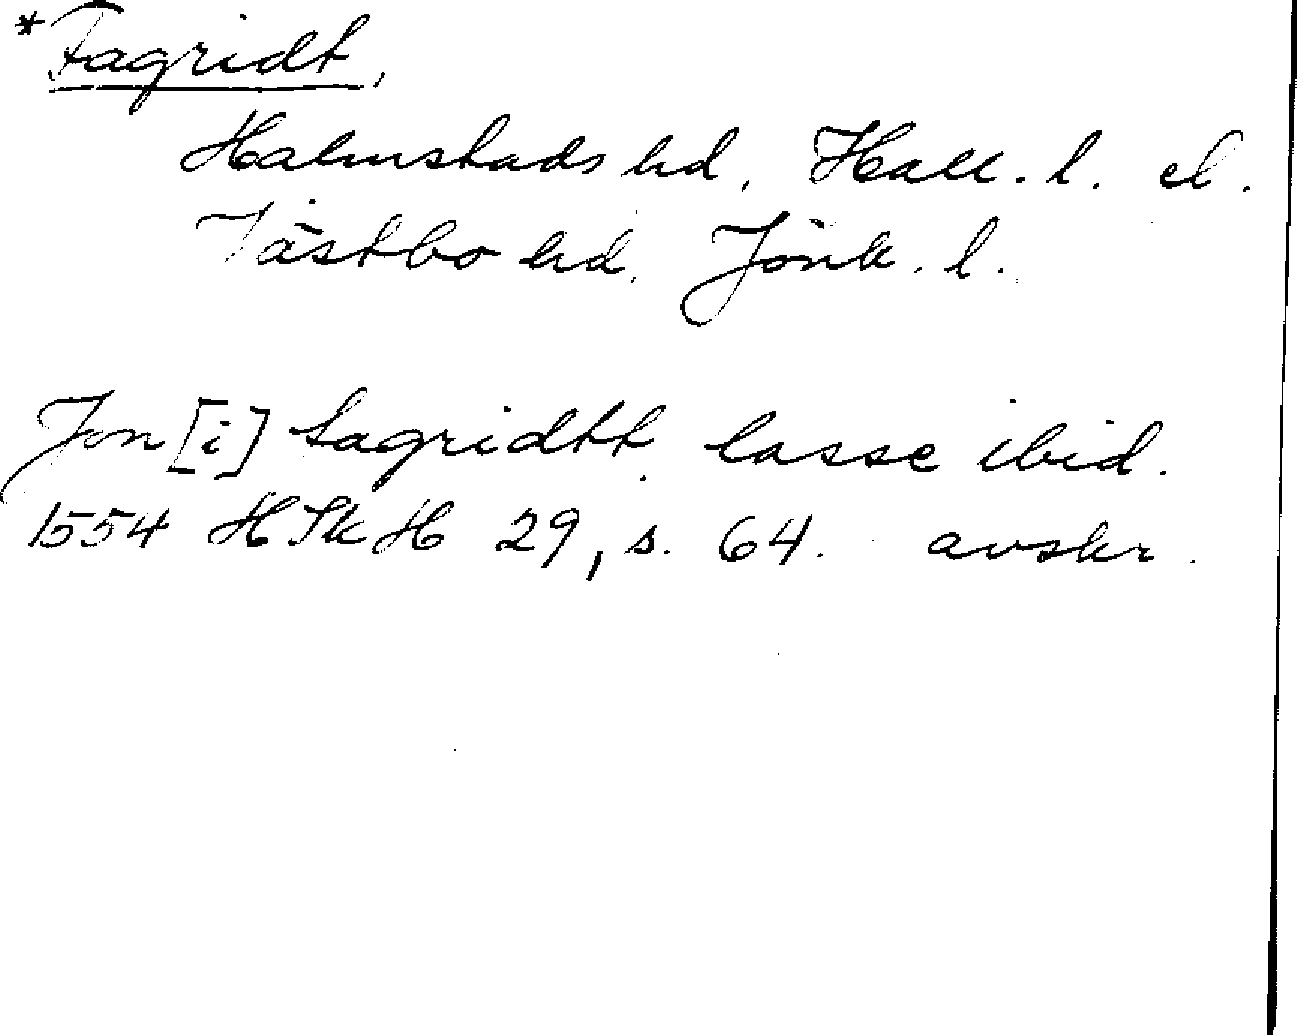 *Fagridt,
Halmstads hd, Hall. l. el.
Västbo hd, Jönk. l.
Jon [i] fagridtt, lasse ibid.
1554 HSkH 29, s. 64. avskr.